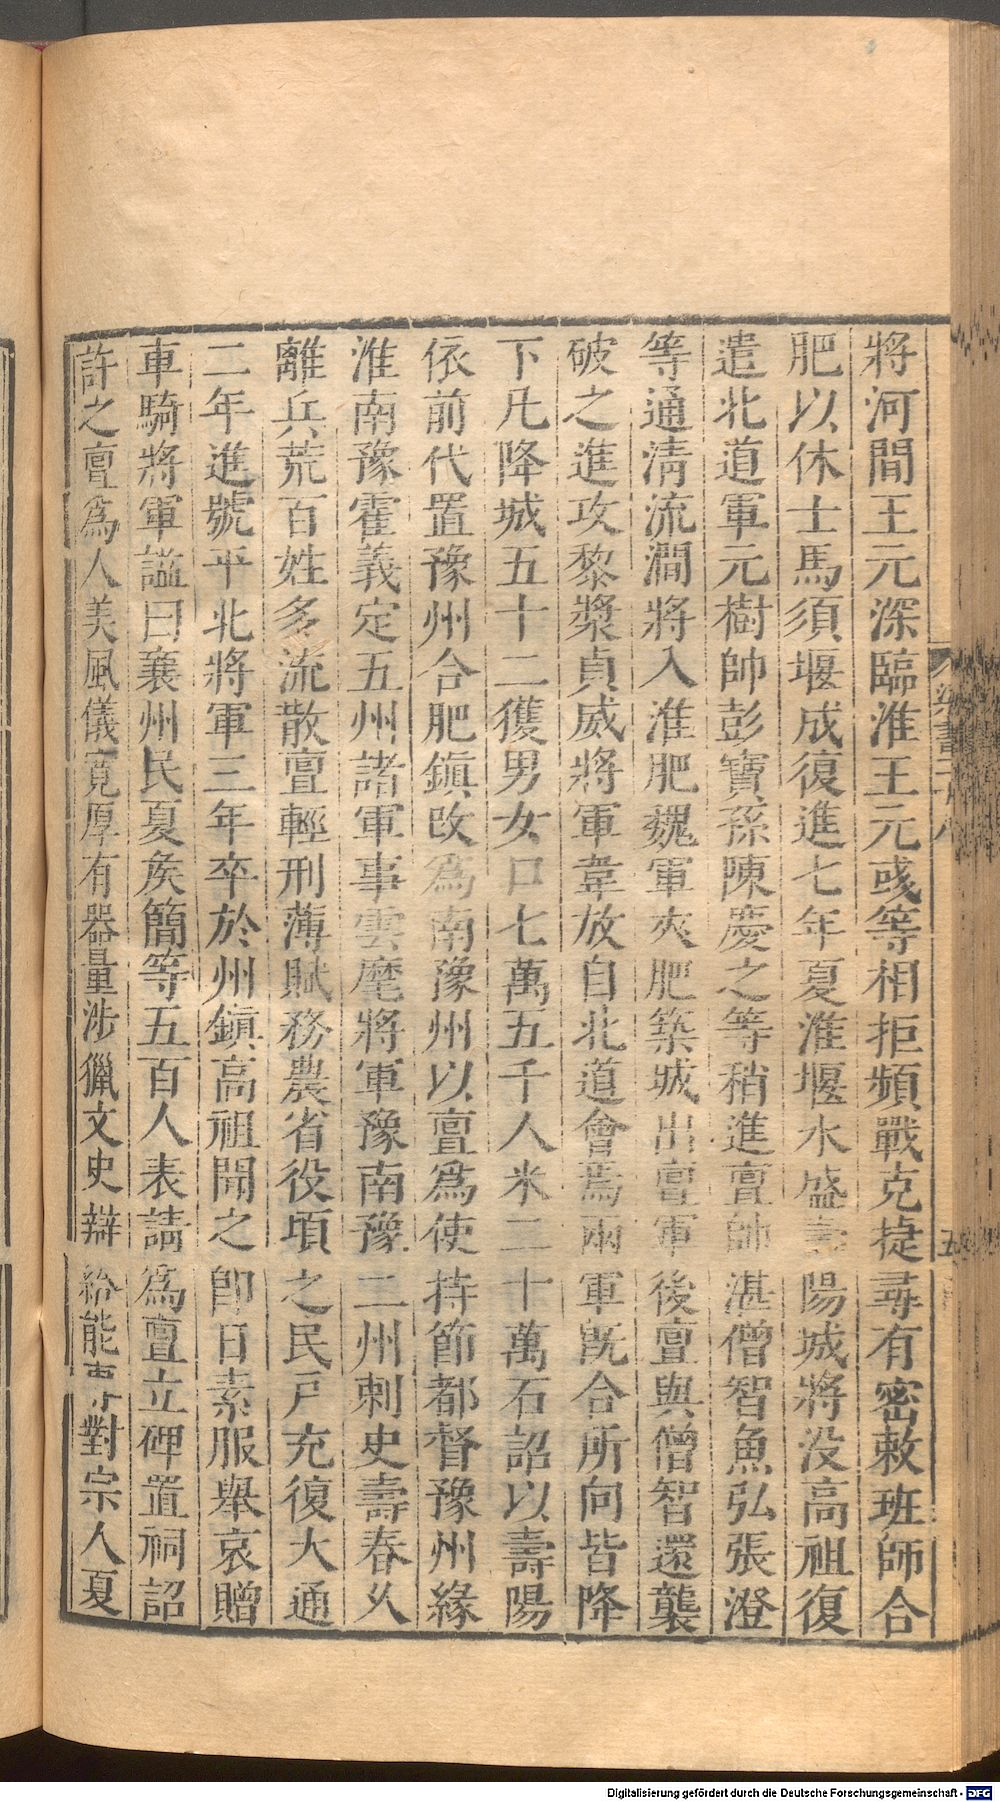 將河間王元深臨淮王元彧等相拒頻戰克捷尋有密敕班師合
肥以休士馬須堰成復進七年夏淮堰水盛壽陽城將没高祖復
遣北道軍元樹帥彭寶孫陳慶之等稍進亶帥湛僧智魚弘張澄
等通清流澗將入淮肥魏軍夾肥築城出亶軍後亶與僧智還襲
破之進攻黎漿貞威將軍韋放自北道會焉兩軍旣合所向皆降
下凡降城五十二獲男女口七萬五千人米二十萬石詔以壽陽
依前代置豫州合肥鎮改爲南豫州以亶爲使持節都督豫州緣
淮南豫霍義定五州諸軍事雲麾將軍豫南豫二州刺史壽春久
離兵荒百姓多流散亶輕刑薄賦務農省役頃之民戸充復大通
二年進號平北將軍三年卒於州鎮高祖聞之即日素服舉哀贈
車騎將軍謚曰襄州民夏矦簡等五百人表請爲亶立碑置祠詔
許之亶爲人美風儀寛厚有器量涉獵文史辯給能專對宗人夏
梁書二十八
五
Digitalisierung gefördert durch die Deutsche Forschungsgemeinschaft - DFG